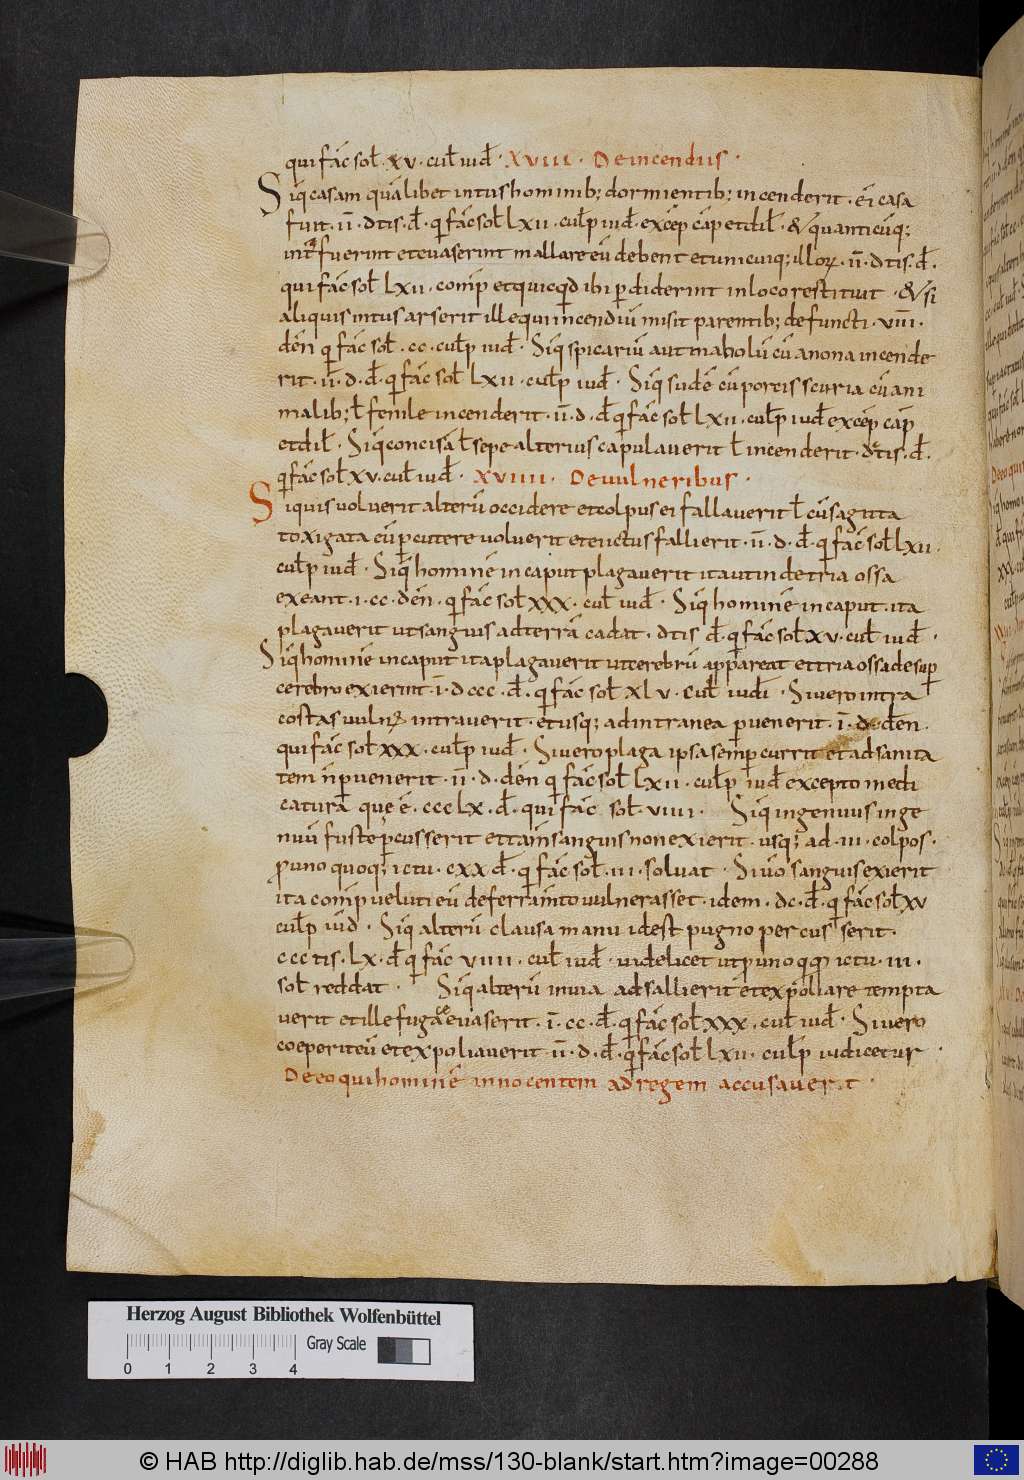 qui fac̄ sol̄ · xv · cul̄ iud̄ · XVIII · De incendiis ·
Siq̄ casam quālibet intus hominib; dormientib; incenderit · ei casa
fuit · II̅ · d tis · d̄ · q̄ fac̄ sol̄ lxII · culp̄ iud̄ · excep̄ cap̄ et dil̄ · & quanticūq;
intra fuerint et evaserint mallare eū debent et unicuiq; illorꝝ · II̅ · d tis · d̄ ·
qui fac̄ sol̄ lxII · comp̄ et quicqd̄ ibi ꝑdiderint in loco restituit · & si
aliquis intus arserit ille qui incendiū misit parentib; defuncti · VIII̅ ·
den̄ q̄ fac̄ sol̄ · cc · culp̄ iud̄ · Siq̄ spicariū aut maholū cū anona incende
rit · II̅ · d · d̄ · q̄ fac̄ sol̄ lxII · culp̄ iud̄ · Siq̄ sudē cū porcis scuria cū ani
malib; ł fenile incenderit · II̅ · d · d̄ q̄ fac̄ sol̄ lxII · culp̄ iud̄ excep̄ cap̄
et dil̄ · Siq̄ concisā ł sepe alterius capulaverit ł incenderit · dc tis · d̄ ·
q̄ fac̄ sol̄ xv · cul̄ iud̄ · XVIIII · De vulneribus ·
Siquis voluerit alterū occidere et colpus ei fallaverit ł cū sagitta
toxigata eū ꝑcutere voluerit et ei ictus fallierit · II̅ · d · d̄ · q̄ fac̄ sol̄ lxII ·
culp̄ iud̄ · Siq̄ hominē in caput plagaverit ita ut inde tria ossa
exeant · I · cc · den̄ · q̄ fac̄ sol̄ xxx · cul̄ iud̄ · Siq̄ hominē in caput · ita
plagaverit ut sanguis ad terrā cadat · d tis d̄ · q̄ fac̄ sol̄ xv · cul̄ iud̄ ·
Siq̄ hominē in caput ita plagaverit ut cerebrū appareat et tria ossa desuꝑ
cerebro exierint · I̅ · dccc · d̄ · q̄ fac̄ sol̄ xlv · cul̄ iud̄ · Si vero intra
costas vuln; intraverit · et usq; ad intranea ꝑvenerit · I̅ · d · den̄ ·
qui fac̄ sol̄ xxx · culp̄ iud̄ · Si vero plaga ipsa semꝑ currit et ad sanita
tem n̄ ꝑvenerit · II̅ · d · den̄ q̄ fac̄ sol̄ lxII · culp̄ iud̄ excepto medi
caturā que ē · ccclx · d̄ · qui fac̄ sol̄ · vIIII · Siq̄ ingenuus inge
nuū fuste ꝑcusserit et tam̄ sanguis non exierit · usq; ad · III · colpos ·
ꝓ uno quoq; ictu · cxx d̄ · q̄ fac̄ sol̄ · III · solvat · Si v̄o sanguis exierit
ita comp̄ veluti eū de ferram̄to vulnerasset · idem · dc · d̄ · q̄ fac̄ sol̄ xv
culp̄ iud̄ · Siq̄ alterū clausa manu id est pugno percusserit ·
ccc tis · lx · d̄ q̄ fac̄ vIIII · cul̄ iud̄ · videlicet ut ꝓ uno qq̄; ictu · III ·
sol̄ reddat · Siq̄ alterū in via adsallierit et expoliare tempta
verit et ille fugā evaserit · I̅ · cc · d̄ · q̄ fac̄ sol̄ xxx · cul̄ iud̄ · Si vero
coeperit eū et expoliaverit · II̅ · d · d̄ · q̄ fac̄ sol̄ lxII · culp̄ iudicetur ·
De eo qui hominē innocentem ad regem accusaverit ·
Herzog August Bibliothek Wolfenbüttel
Gray Scale
0 1 2 3 4
© HAB http://diglib.hab.de/mss/130-blank/start.htm?image=00288